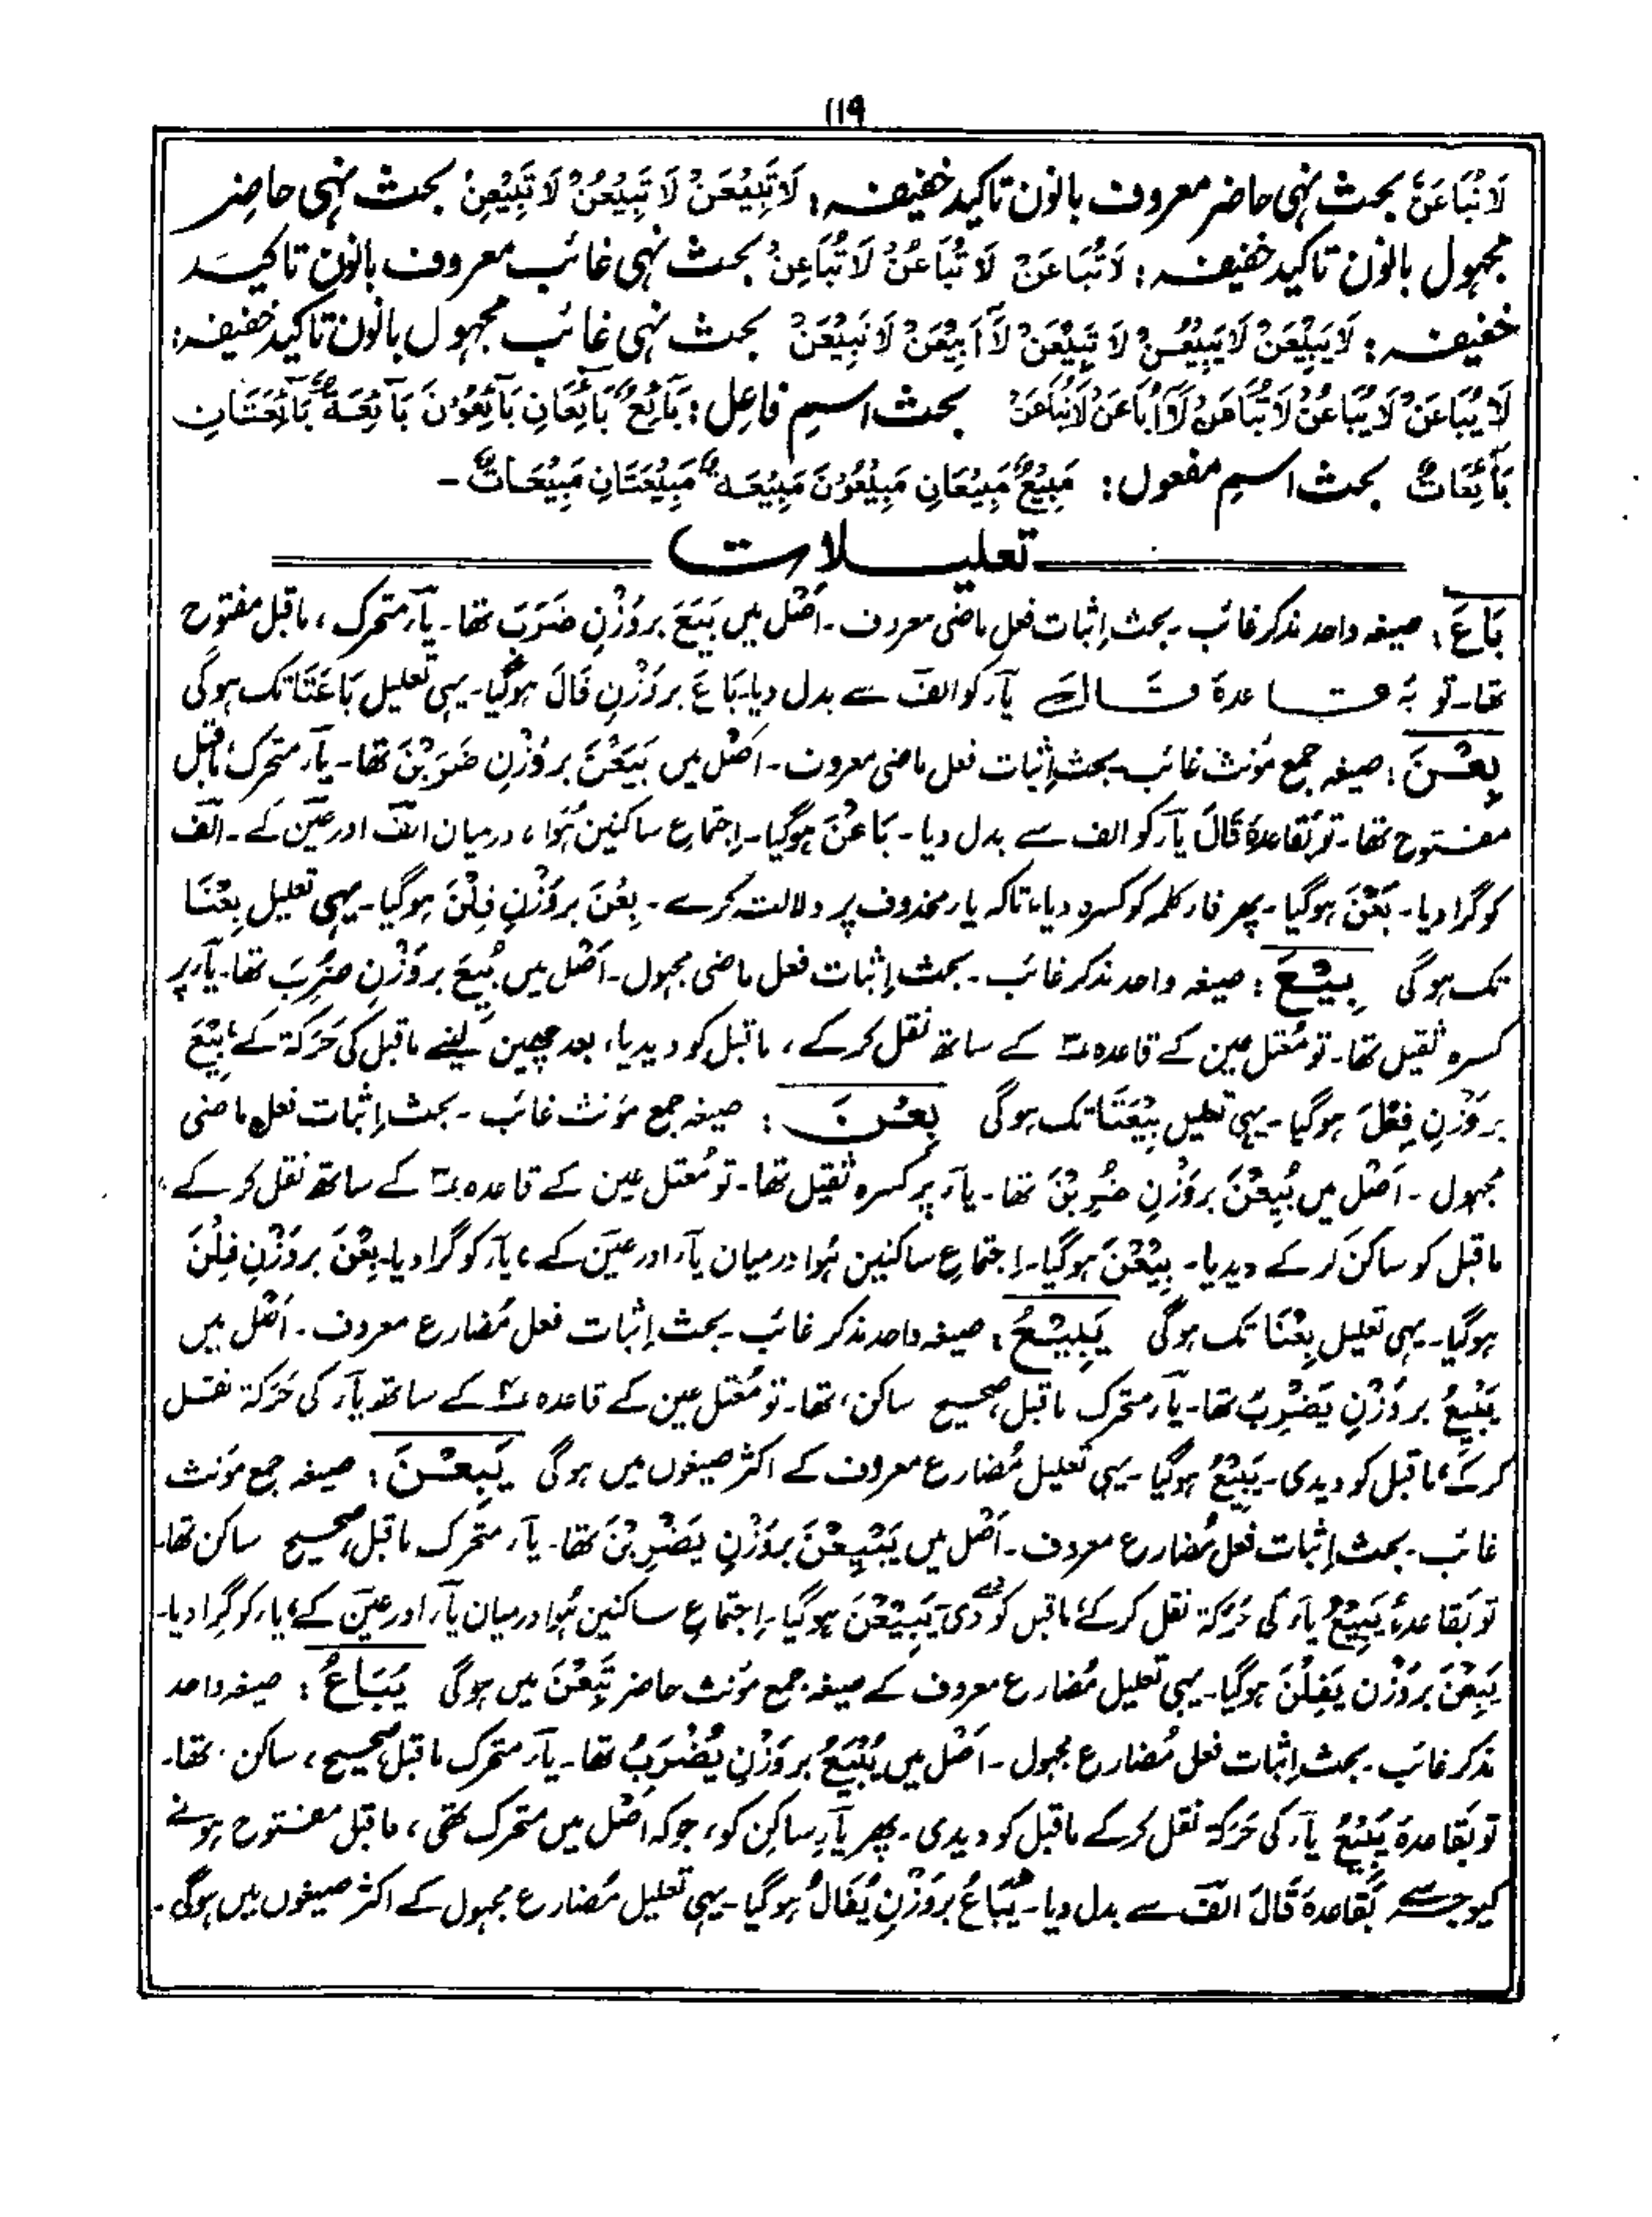 ۱۱۹
لَا نُبَاعَنَّ بحث نہی حاضر معروف بانون تاکید خفیفہ: لَا تَبِیْعَنْ لَا تَبِیْعُنْ لَا تَبِیْعِنْ بحث نہی حاضر
مجہول بانون تاکید خفیفہ: لَا تُبَاعَنْ لَا تُبَاعُنْ لَا تُبَاعِنْ بحث نہی غائب معروف بانون تاکید
خفیفہ: لَا یَبِیْعَنْ لَا یَبِیْعُنْ لَا تَبِیْعَنْ لَا اَبِیْعَنْ لَا نَبِیْعَنْ بحث نہی غائب مجہول بانون تاکید خفیفہ:
لَا یُبَاعَنْ لَا یُبَاعُنْ لَا تُبَاعَنْ لَا اُبَاعَنْ لَا نُبَاعَنْ بحث اسمِ فاعِل: بَآئِعٌ بَآئِعَانِ بَآئِعُوْنَ بَآئِعَةٌ بَآئِعَتَانِ
بَآئِعَاتٌ بحث اسمِ مفعول: مَبِیْعٌ مَبِیْعَانِ مَبِیْعُوْنَ مَبِیْعَةٌ مَبِیْعَتَانِ مَبِیْعَاتٌ۔
تعلیلات
بَاعَ: صیغہ واحد مذکر غائب۔ بحث اِثبات فعل ماضی معروف۔ اَصْل میں بَیَعَ بروَزْنِ ضَرَبَ تھا۔ یآء متحرک، ماقبل مفتوح
تھا۔ تو بہ قاعدہ قَالَ یآء کو الف سے بدل دیا۔ بَاعَ بروَزْنِ قَالَ ہوگیا۔ یہی تعلیل بَاعَتَا تک ہوگی
بِعْنَ: صیغہ جمع مؤنث غائب۔ بحث اِثبات فعل ماضی معروف۔ اَصْل میں بَیَعْنَ بروَزْنِ ضَرَبْنَ تھا۔ یآء متحرک، ماقبل
مفتوح تھا۔ تو بَقاعدہ قَالَ یآء کو الف سے بدل دیا۔ بَاعْنَ ہوگیا۔ اِجتماعِ ساکنین ہُوا، درمیان الف اور عین کے۔ الف
کو گرا دیا۔ بَعْنَ ہوگیا۔ پھر فار کلمہ کو کسرہ دیا، تاکہ یار محذوف پر دلالت کرے۔ بِعْنَ بروَزْنِ فِلْنَ ہوگیا۔ یہی تعلیل بِعْنَا
تک ہوگی بِیْعَ: صیغہ واحد مذکر غائب۔ بحث اِثبات فعل ماضی مجہول۔ اَصْل میں بُیِعَ بروَزْنِ ضُرِبَ تھا۔ یآء پر
کسرہ ثقیل تھا۔ تو مُعتل عین کے قاعدہ کے ساتھ نقل کر کے، ماقبل کو دیدیا، بعد چھین لینے ماقبل کی حَرَکۃ کے، بِیْعَ
بروَزْنِ فِعْلَ ہوگیا۔ یہی تعلیل بِیْعَتَا تک ہوگی بِعْنَ: صیغہ جمع مؤنث غائب۔ بحث اِثبات فعل ماضی
مجہول۔ اَصْل میں بُیِعْنَ بروَزْنِ ضُرِبْنَ تھا۔ یآء پر کسرہ ثقیل تھا۔ تو مُعتل عین کے قاعدہ کے ساتھ نقل کر کے،
ماقبل کو ساکن کر کے دیدیا۔ بِیْعْنَ ہوگیا۔ اِجتماعِ ساکنین ہُوا درمیان یآء اور عین کے، یآء کو گرا دیا۔ بِعْنَ بروَزْنِ فِلْنَ
ہوگیا۔ یہی تعلیل بِعْنَا تک ہوگی یَبِیْعُ: صیغہ واحد مذکر غائب۔ بحث اِثبات فعل مُضارع معروف۔ اَصْل میں
یَبْیِعُ بروَزْنِ یَضْرِبُ تھا۔ یآء متحرک ماقبل صحیح ساکن، تھا۔ تو مُعتل عین کے قاعدہ کے ساتھ یآء کی حَرَکۃ نقل
کر کے، ماقبل کو دیدی۔ یَبِیْعُ ہوگیا۔ یہی تعلیل مُضارع معروف کے اکثر صیغوں میں ہوگی یَبِعْنَ: صیغہ جمع مؤنث
غائب۔ بحث اِثبات فعل مُضارع معروف۔ اَصْل میں یَبْیِعْنَ بروَزْنِ یَضْرِبْنَ تھا۔ یآء متحرک ماقبل صحیح ساکن تھا۔
تو بَقاعدہ یَبِیْعُ یآء کی حَرَکۃ نقل کر کے، ماقبل کو دی یَبِیْعْنَ ہوگیا۔ اِجتماعِ ساکنین ہُوا درمیان یآء اور عین کے، یار کو گرا دیا۔
یَبِعْنَ بروَزْنِ یَفِلْنَ ہوگیا۔ یہی تعلیل مُضارع معروف کے صیغہ جمع مؤنث حاضر تَبِعْنَ میں ہوگی یُبَاعُ: صیغہ واحد
مذکر غائب۔ بحث اِثبات فعل مُضارع مجہول۔ اَصْل میں یُبْیَعُ بروَزْنِ یُضْرَبُ تھا۔ یآء متحرک ماقبل صحیح، ساکن تھا۔
تو بَقاعدہ یَبِیْعُ یآء کی حَرَکۃ نقل کر کے ماقبل کو دیدی۔ پھر یآءِ ساکِن کو، جوکہ اَصْل میں متحرک تھی، ماقبل مفتوح ہونے
کیوجہ سے بَقاعدہ قَالَ الف سے بدل دیا۔ یُبَاعُ بروَزْنِ یُقَالُ ہوگیا۔ یہی تعلیل مُضارع مجہول کے اکثر صیغوں میں ہوگی۔